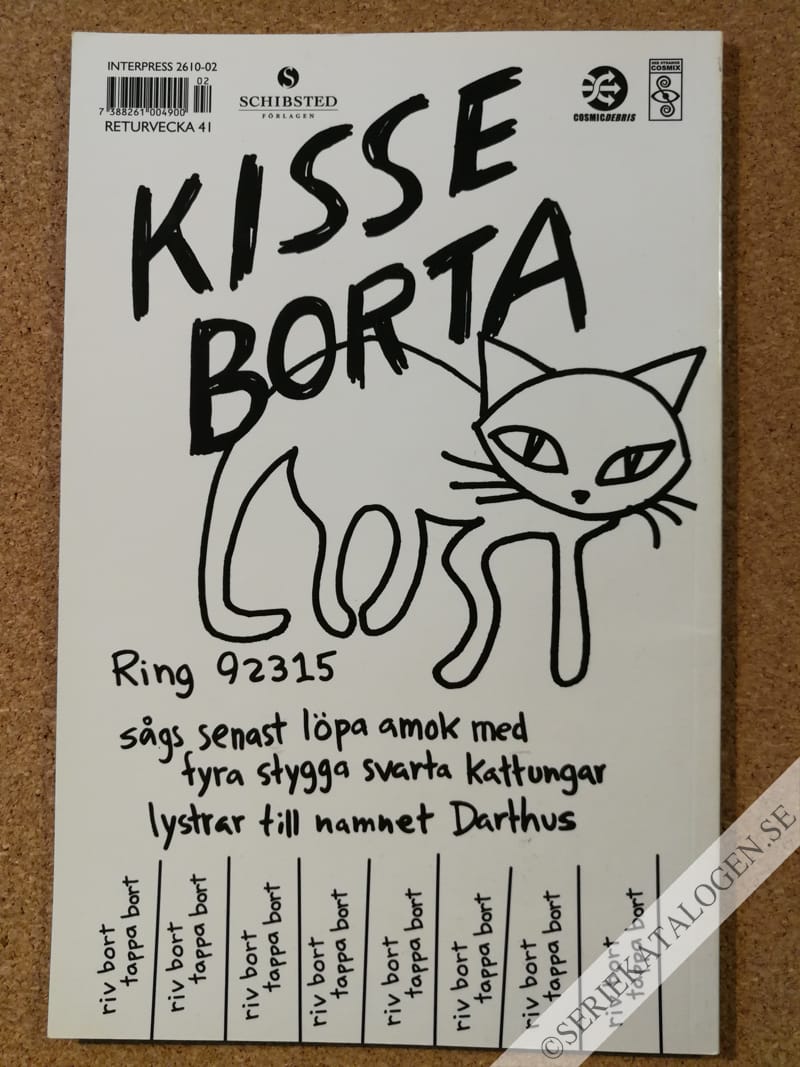 INTERPRESS 2610-02
02
7 388261 004900
RETURVECKA 41
S
SCHIBSTED
FÖRLAGEN
COSMICDEBRIS
COSMIX
KISSE
BORTA
Ring 92315
sågs senast löpa amok med
fyra stygga svarta kattungar
lystrar till namnet Darthus
riv bort
tappa bort
riv bort
tappa bort
riv bort
tappa bort
riv bort
tappa bort
riv bort
tappa bort
riv bort
tappa bort
riv bort
tappa bort
riv bort
tappa bort
©SERIEKATALOGEN.SE